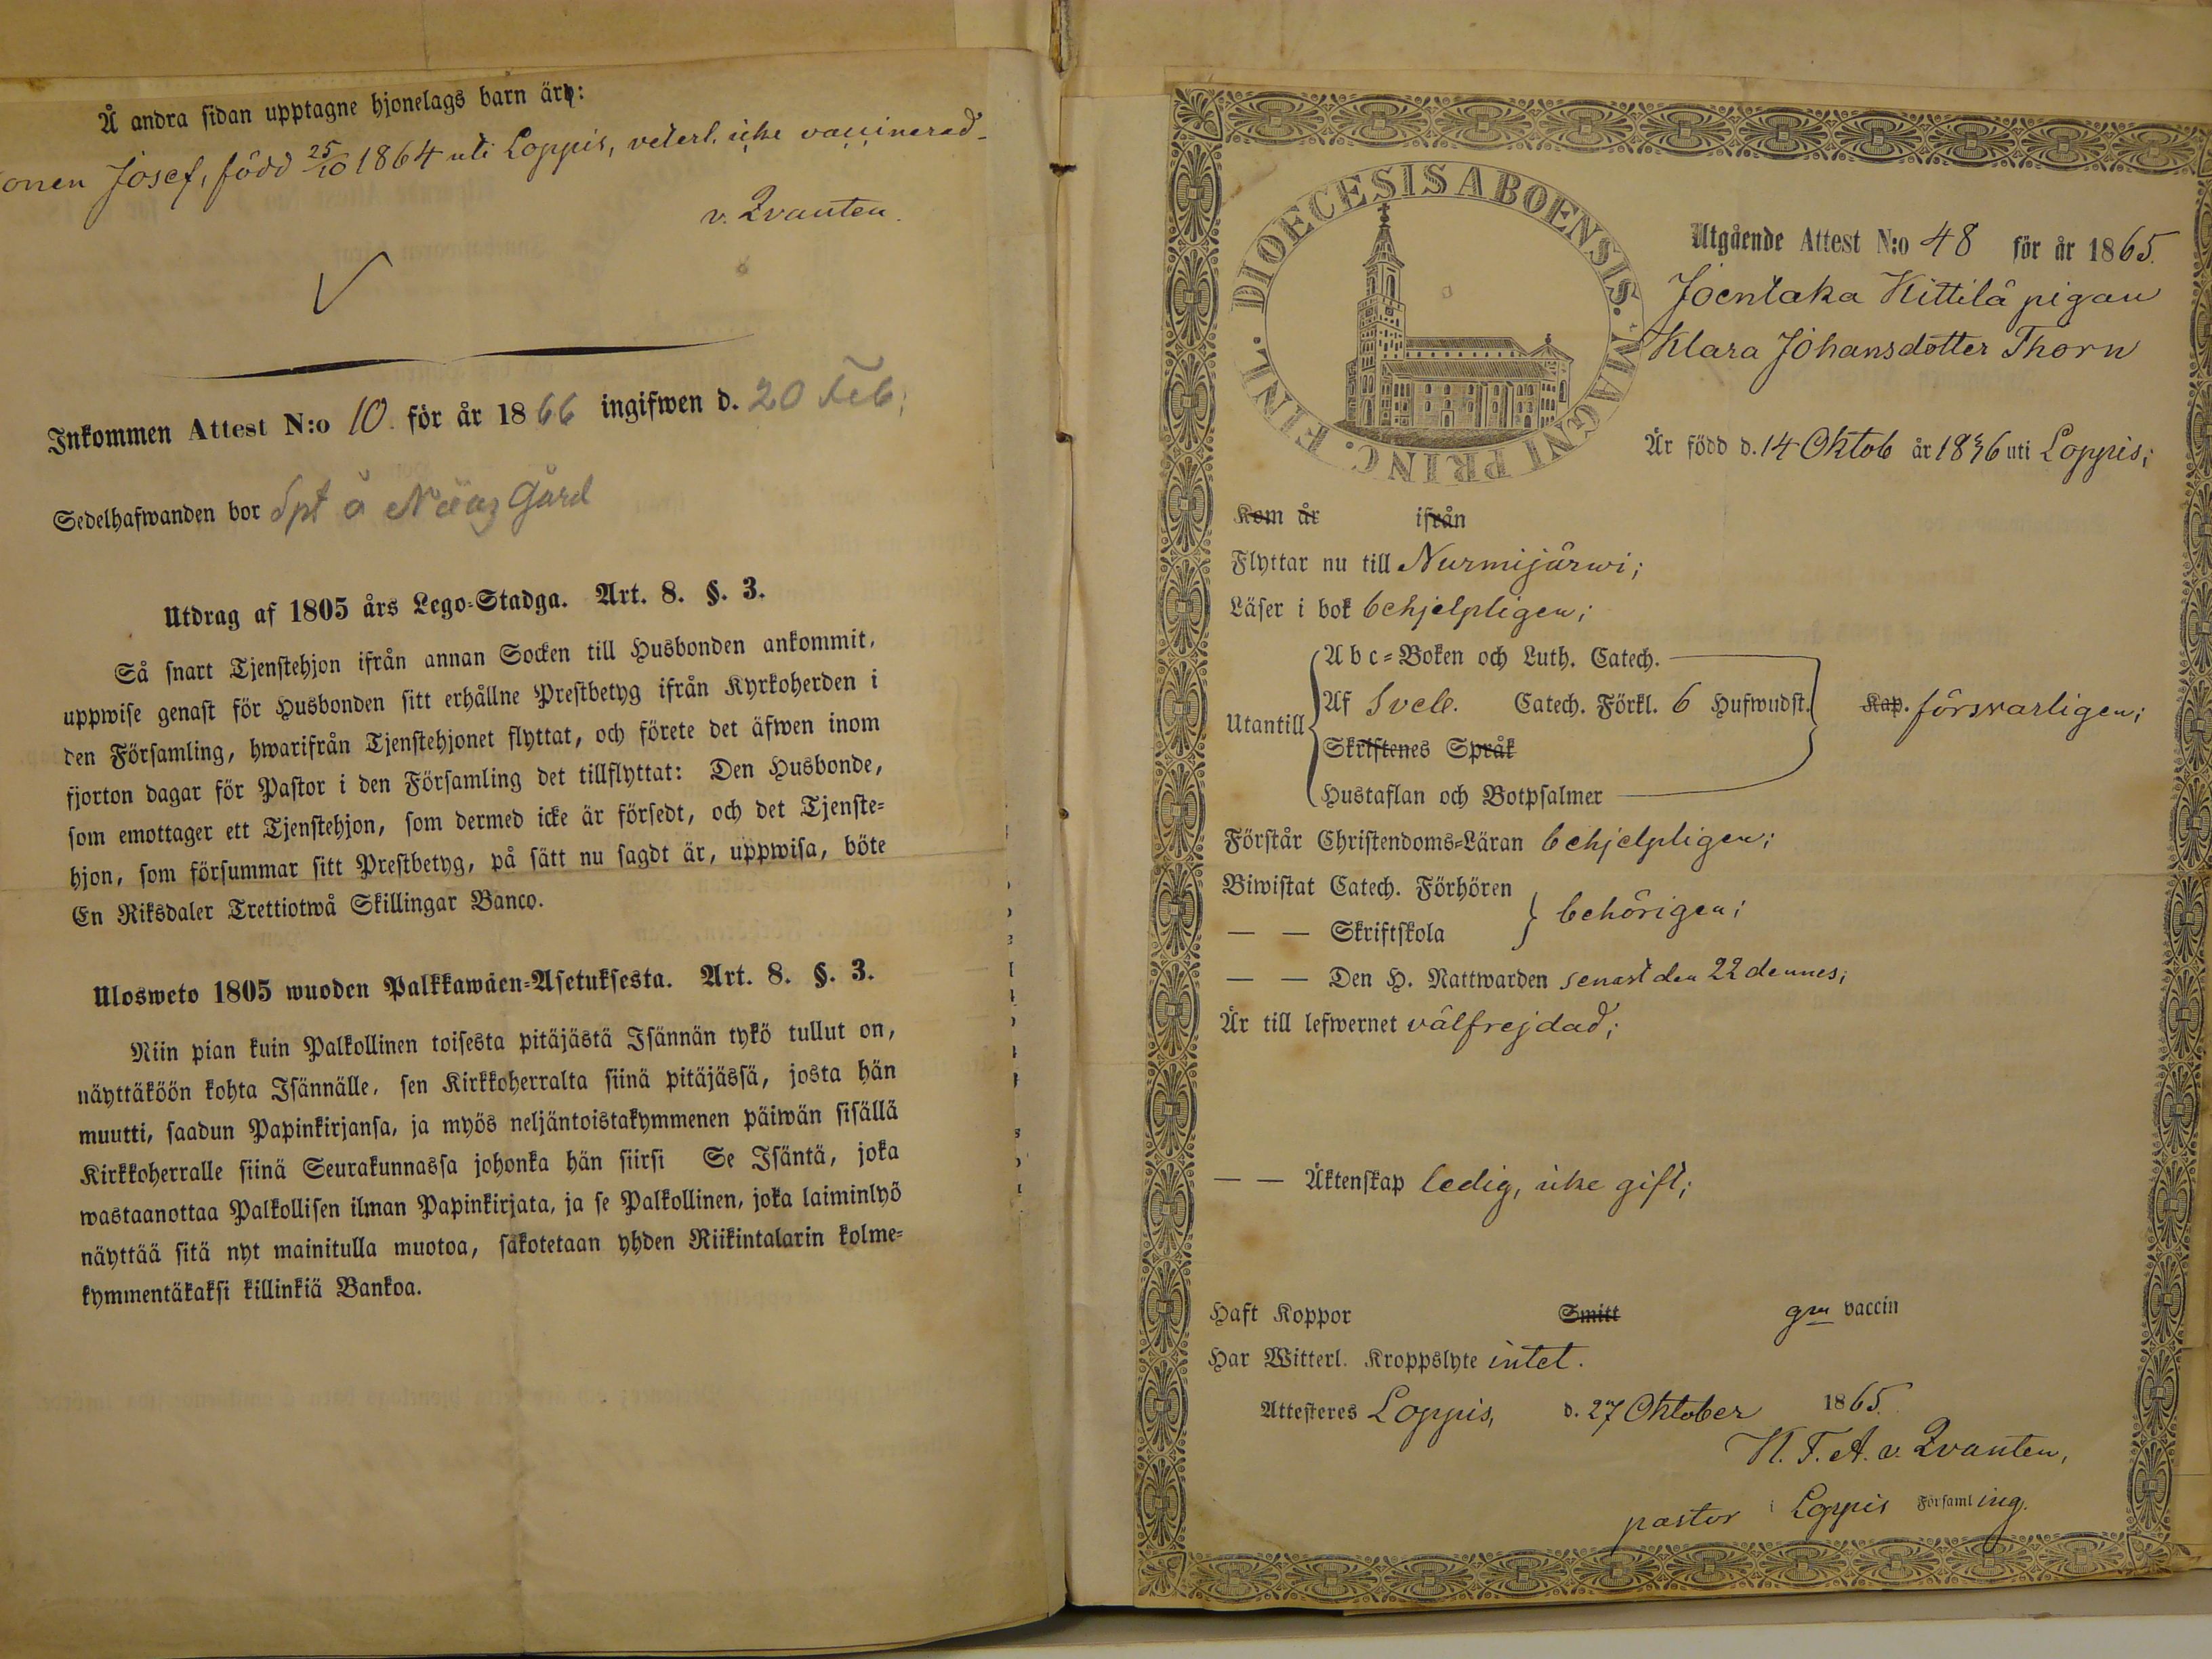 Å andra sidan upptagne hjonelags barn äro:
onen Josef, född 25/10 1864 uti Loppis, veterl. icke vaccinerad.
v. Qvanten.
Inkommen Attest N:o 10. för år 1866 ingifwen d. 20 Feb;
Sedelhafwanden bor Spt å Gård
Utdrag af 1805 års Lego-Stadga. Art. 8. §. 3.
Så snart Tjenstehjon ifrån annan Socken till Husbonden ankommit,
uppwise genast för Husbonden sitt erhållne Prestbetyg ifrån Kyrkoherden i
den Församling, hwarifrån Tjenstehjonet flyttat, och förete det äfwen inom
fjorton dagar för Pastor i den Församling det tillflyttat: Den Husbonde,
som emottager ett Tjenstehjon, som dermed icke är försedt, och det Tjenste-
hjon, som försummar sitt Prestbetyg, på sätt nu sagdt är, uppwisa, böte
En Riksdaler Trettiotwå Skillingar Banco.
Ulosweto 1805 wuoden Palkkawäen-Asetuksesta. Art. 8. §. 3.
Niin pian kuin Palkollinen toisesta pitäjästä Isännän tykö tullut on,
näyttäköön kohta Isännälle, sen Kirkkoherralta siinä pitäjässä, josta hän
muutti, saadun Papinkirjansa, ja myös neljäntoistakymmenen päiwän sisällä
Kirkkoherralle siinä Seurakunnassa johonka hän siirsi Se Isäntä, joka
wastaanottaa Palkollisen ilman Papinkirjata, ja se Palkollinen, joka laiminlyö
näyttää sitä nyt mainitulla muotoa, sakotetaan yhden Riikintalarin kolme-
kymmentäkaksi killinkiä Bankoa.
DIOECESIS ABOENSIS. MAGNI PRINC. FINL.
Utgående Attest N:o 48 för år 1865.
Joentaka Kittilä pigan
Klara Johansdotter Thorn
Är född d. 14 Oktob år 1836 uti Loppis;
Kom år ifrån
Flyttar nu till Nurmijärwi;
Läser i bok behjelpligen;
Abc-Boken och Luth. Catech.
Utantill Af Sveb. Catech. Förkl. 6 Hufwudst. Kap. försvarligen;
Skriftenes Språk
Hustaflan och Botpsalmer
Förstår Christendoms-Läran behjelpligen;
Biwistat Catech. Förhören
— — Skriftskola behörigen;
— — Den H. Nattwarden senast den 22 dennes;
Är till lefwernet välfrejdad;
— — Äktenskap ledig, icke gift;
Haft Koppor Smitt gm vaccin
Har Witterl. Kroppslyte intet.
Attesteres Loppis, d. 27 Oktober 1865.
K. F. A. v. Qvanten,
pastor i Loppis Församling.